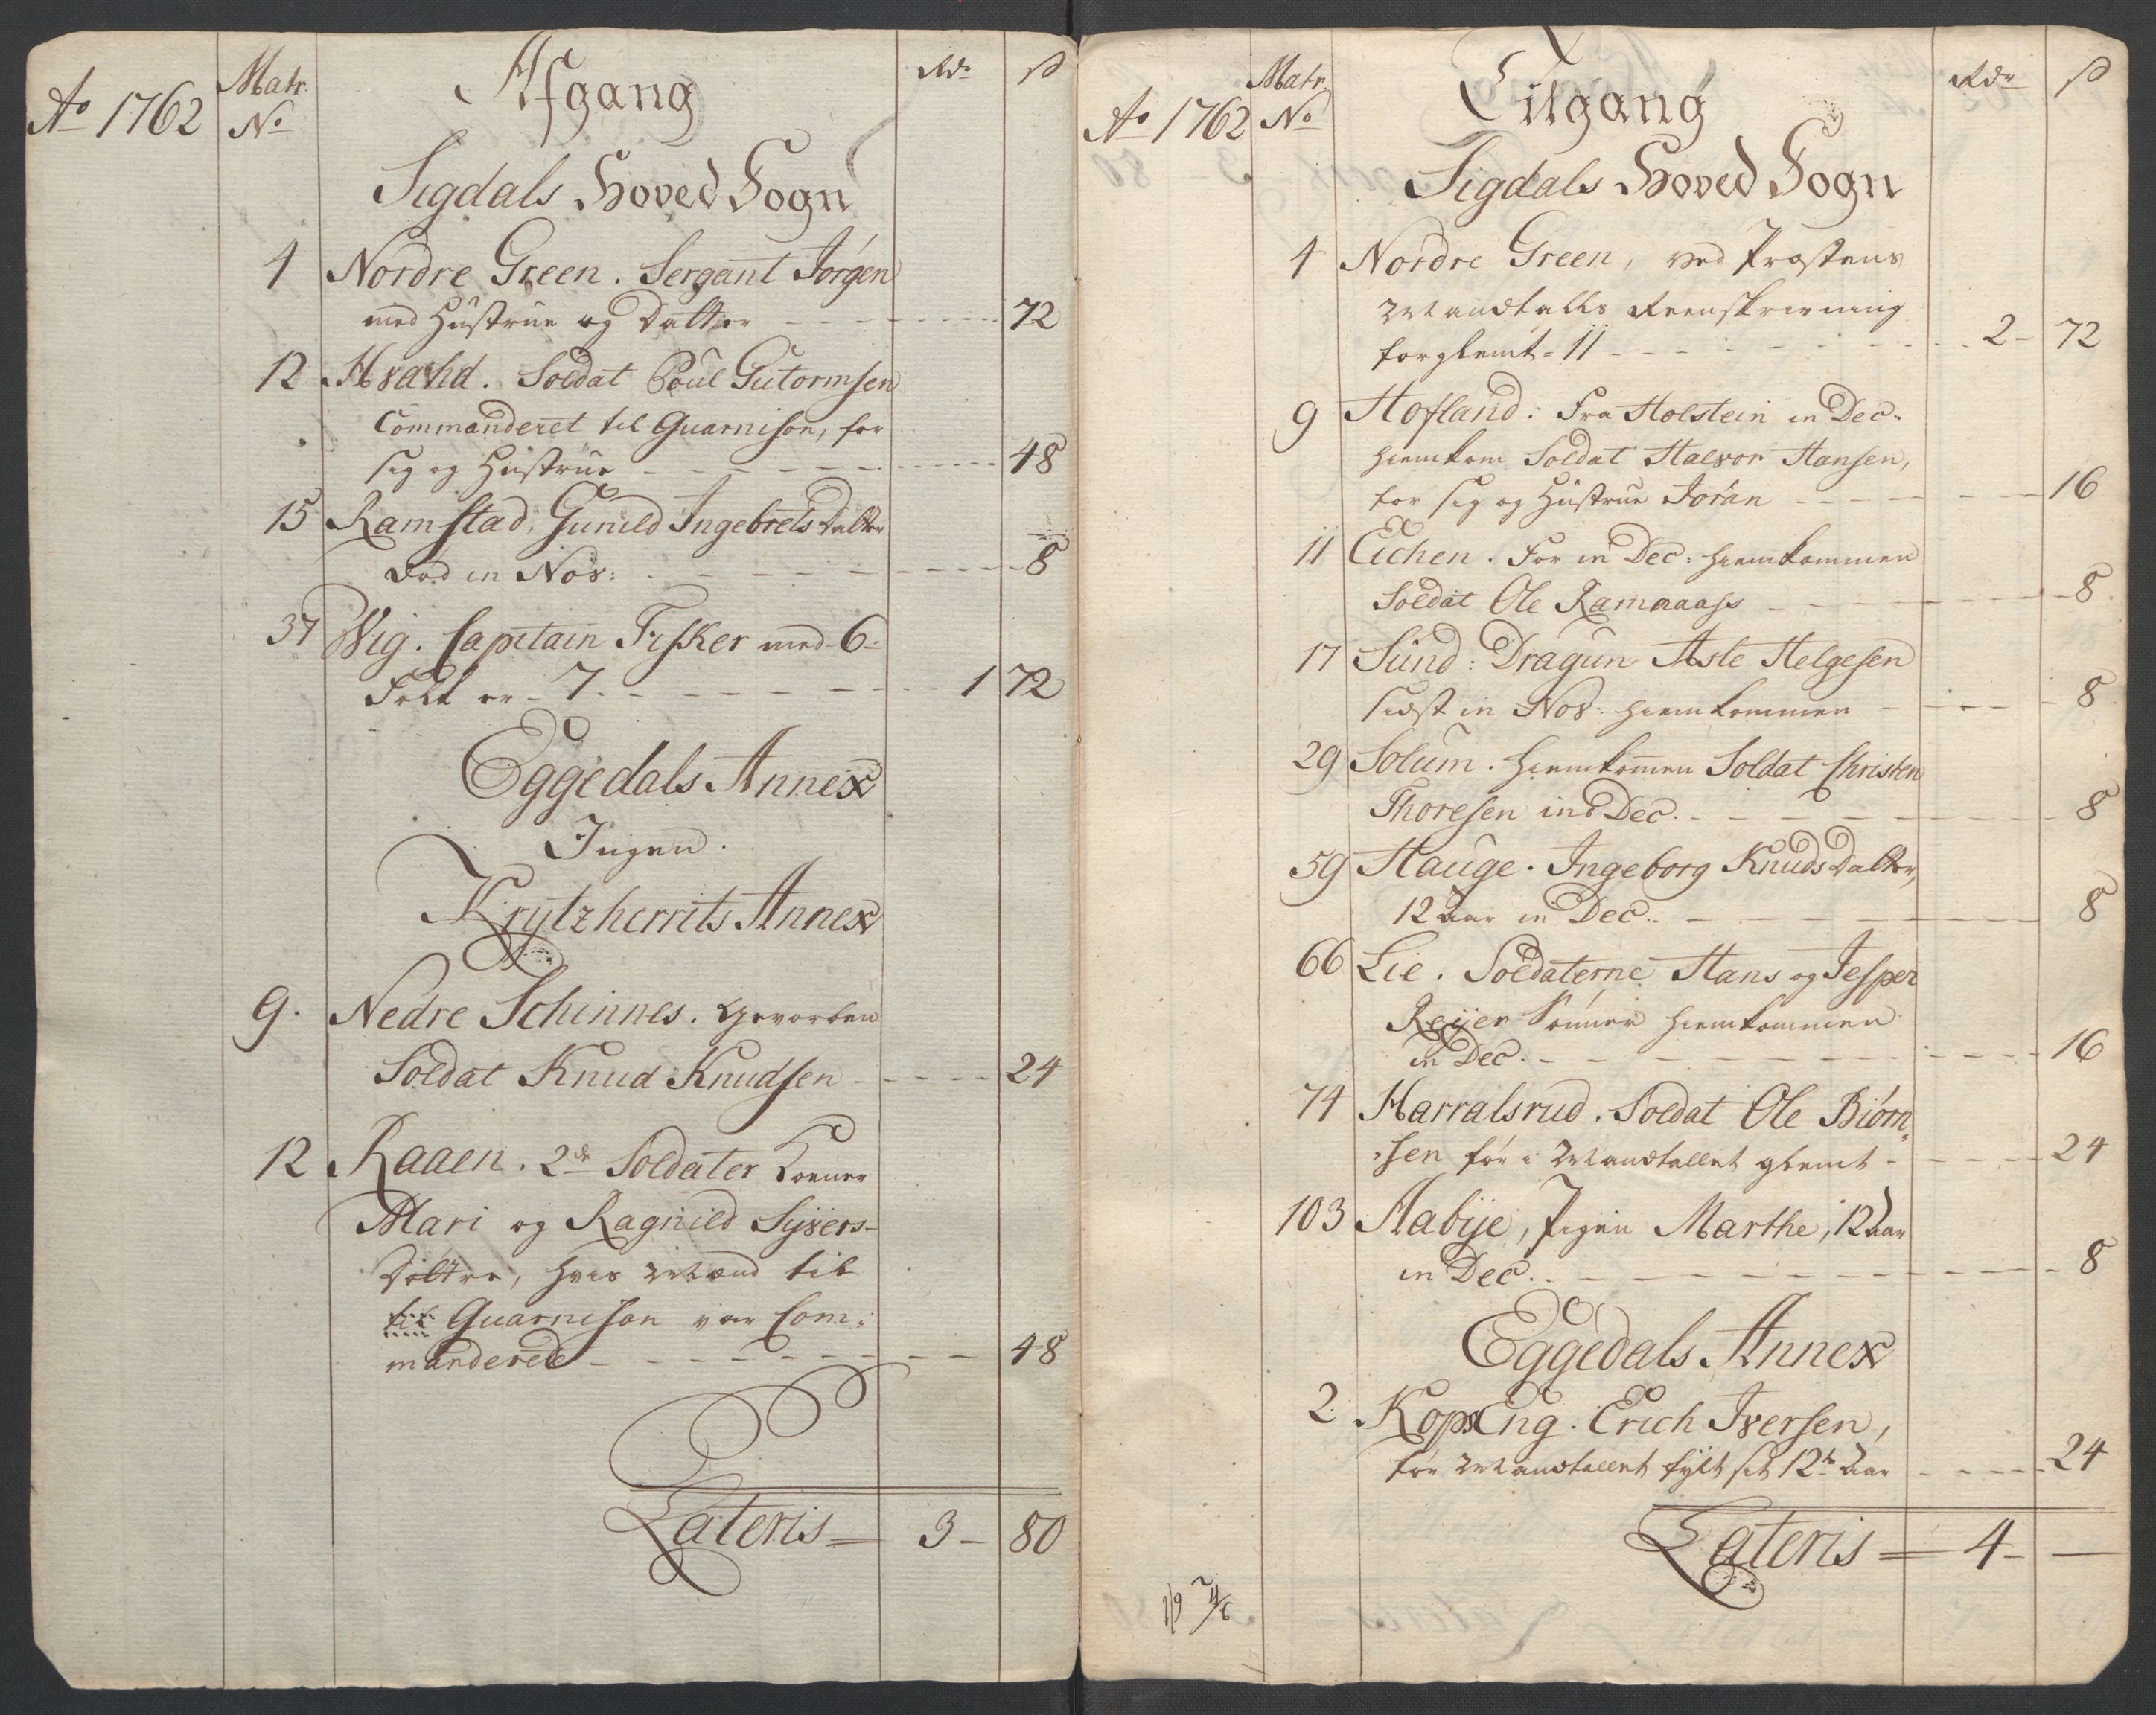 Ao 1762
Matr.
No
Afgang
Rdr
ß
Sigdals Hoved Sogn
4 Nordre Green. Sergant Jörgen
med Hustrue og Datter - - - 72
12 Hvahd. Soldat Poul Gutormsen
Commanderet til Guarnison, for
sig og Hustrue - - - 48
15 Ramstad. Gunild Ingebrets Datter
Död in Nov: - - - 8
37 Wig. Capitain Fisker med 6-
Folk er - 7. - - - 1 72
Eggedals Annex
Ingen.
Krytzherrits Annex
9. Nedre Schinnes. Gevorben
Soldat Knud Knudsen - - - 24
12 Raaen. 2de Soldater Koener
Mari og Ragnild Syvers-
Döttre, hvis Mænd til
til Guarnison var Com-
manderede - - - 48
Lateris = 3 - 80
Ao 1762
Matr.
No
Tilgang
Rdr
ß
Sigdals Hoved Sogn
4 Nordre Green, ved Prostens
Mandtalls Reenskrivning
forglemt - 11 - - - 2 - 72
9 Hofland. Fra Holstein in Dec:
hiemkom Soldat Halvor Hansen,
for sig og Hustrue Joran - - - 16
11 Eichen. For in Dec: hiemkommen
Soldat Ole Ramnaass - - - 8
17 Sund: Dragun Asle Helgesen
sidst in Nov: hiemkommen - - - 8
29 Solum. hiemkommen Soldat Christen
Thoresen ind Dec. - - - 8
59 Hauge. Ingeborg Knuds Datter,
12 Aar in Dec. - - - 8
66 Lie. Soldaterne Hans og Jesper
Reyer Sönner hiemkommen
in Dec. - - - 16
74 Harralsrud. Soldat Ole Biörn-
-sen för i Mandtallet glemt - - - 24
103 Aabye, Pigen Marthe, 12 Aar
in Dec. - - - 8
Eggedals Annex
2. KopsEng. Erich Iversen,
för Mandtallet fylt sit 12te Aar - - - 24
Lateris = 4 - -